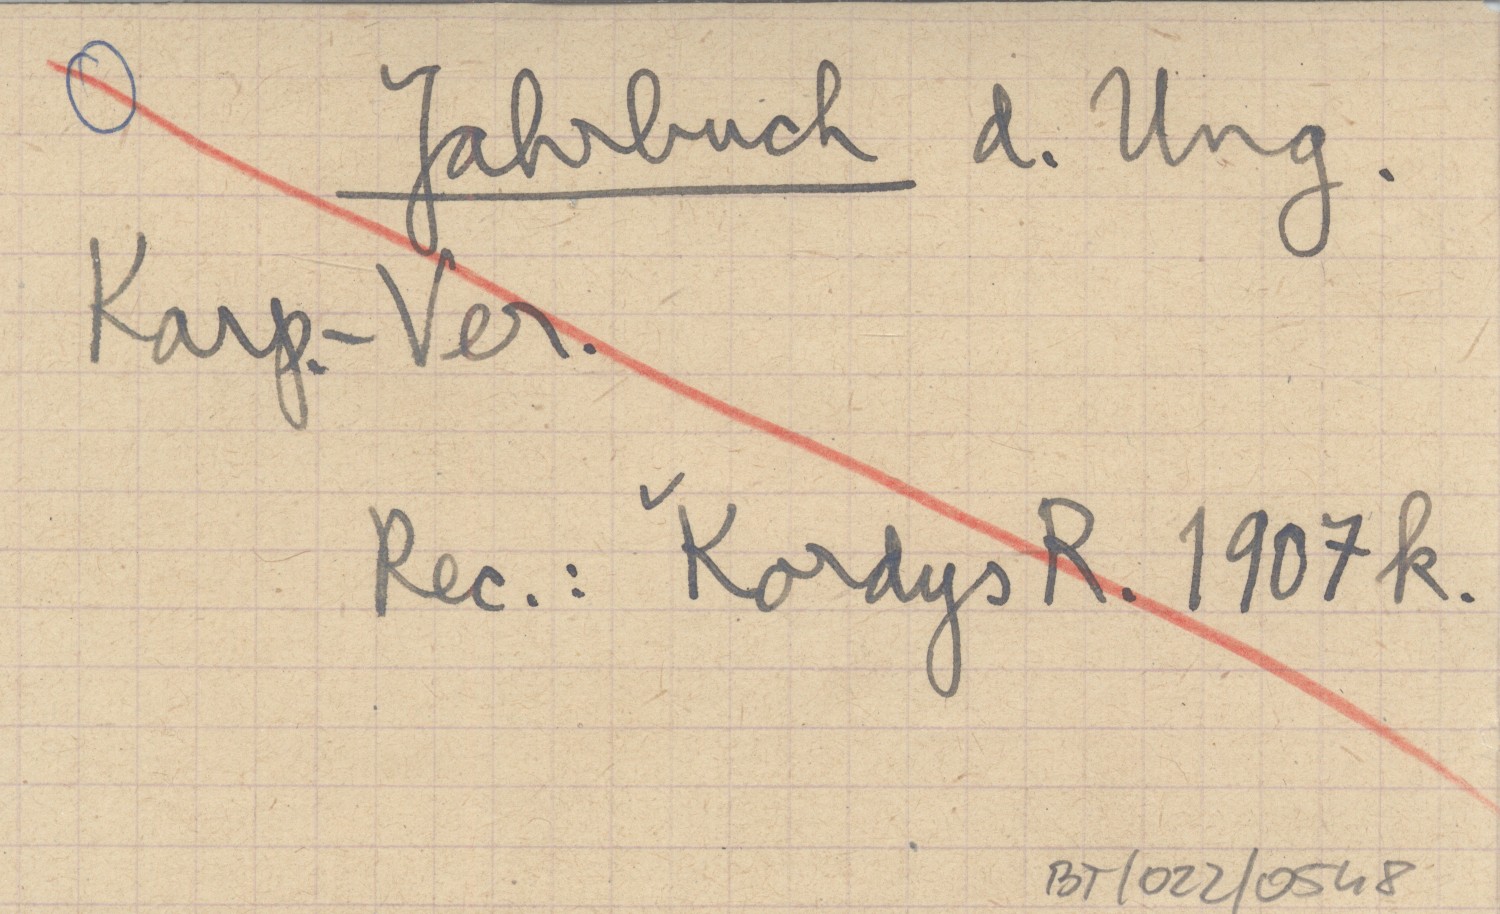 Jahrbuch d. Ung.
Karp.-Ver.
Rec.: ✓Kordys R. 1907k.
BT/022/0548